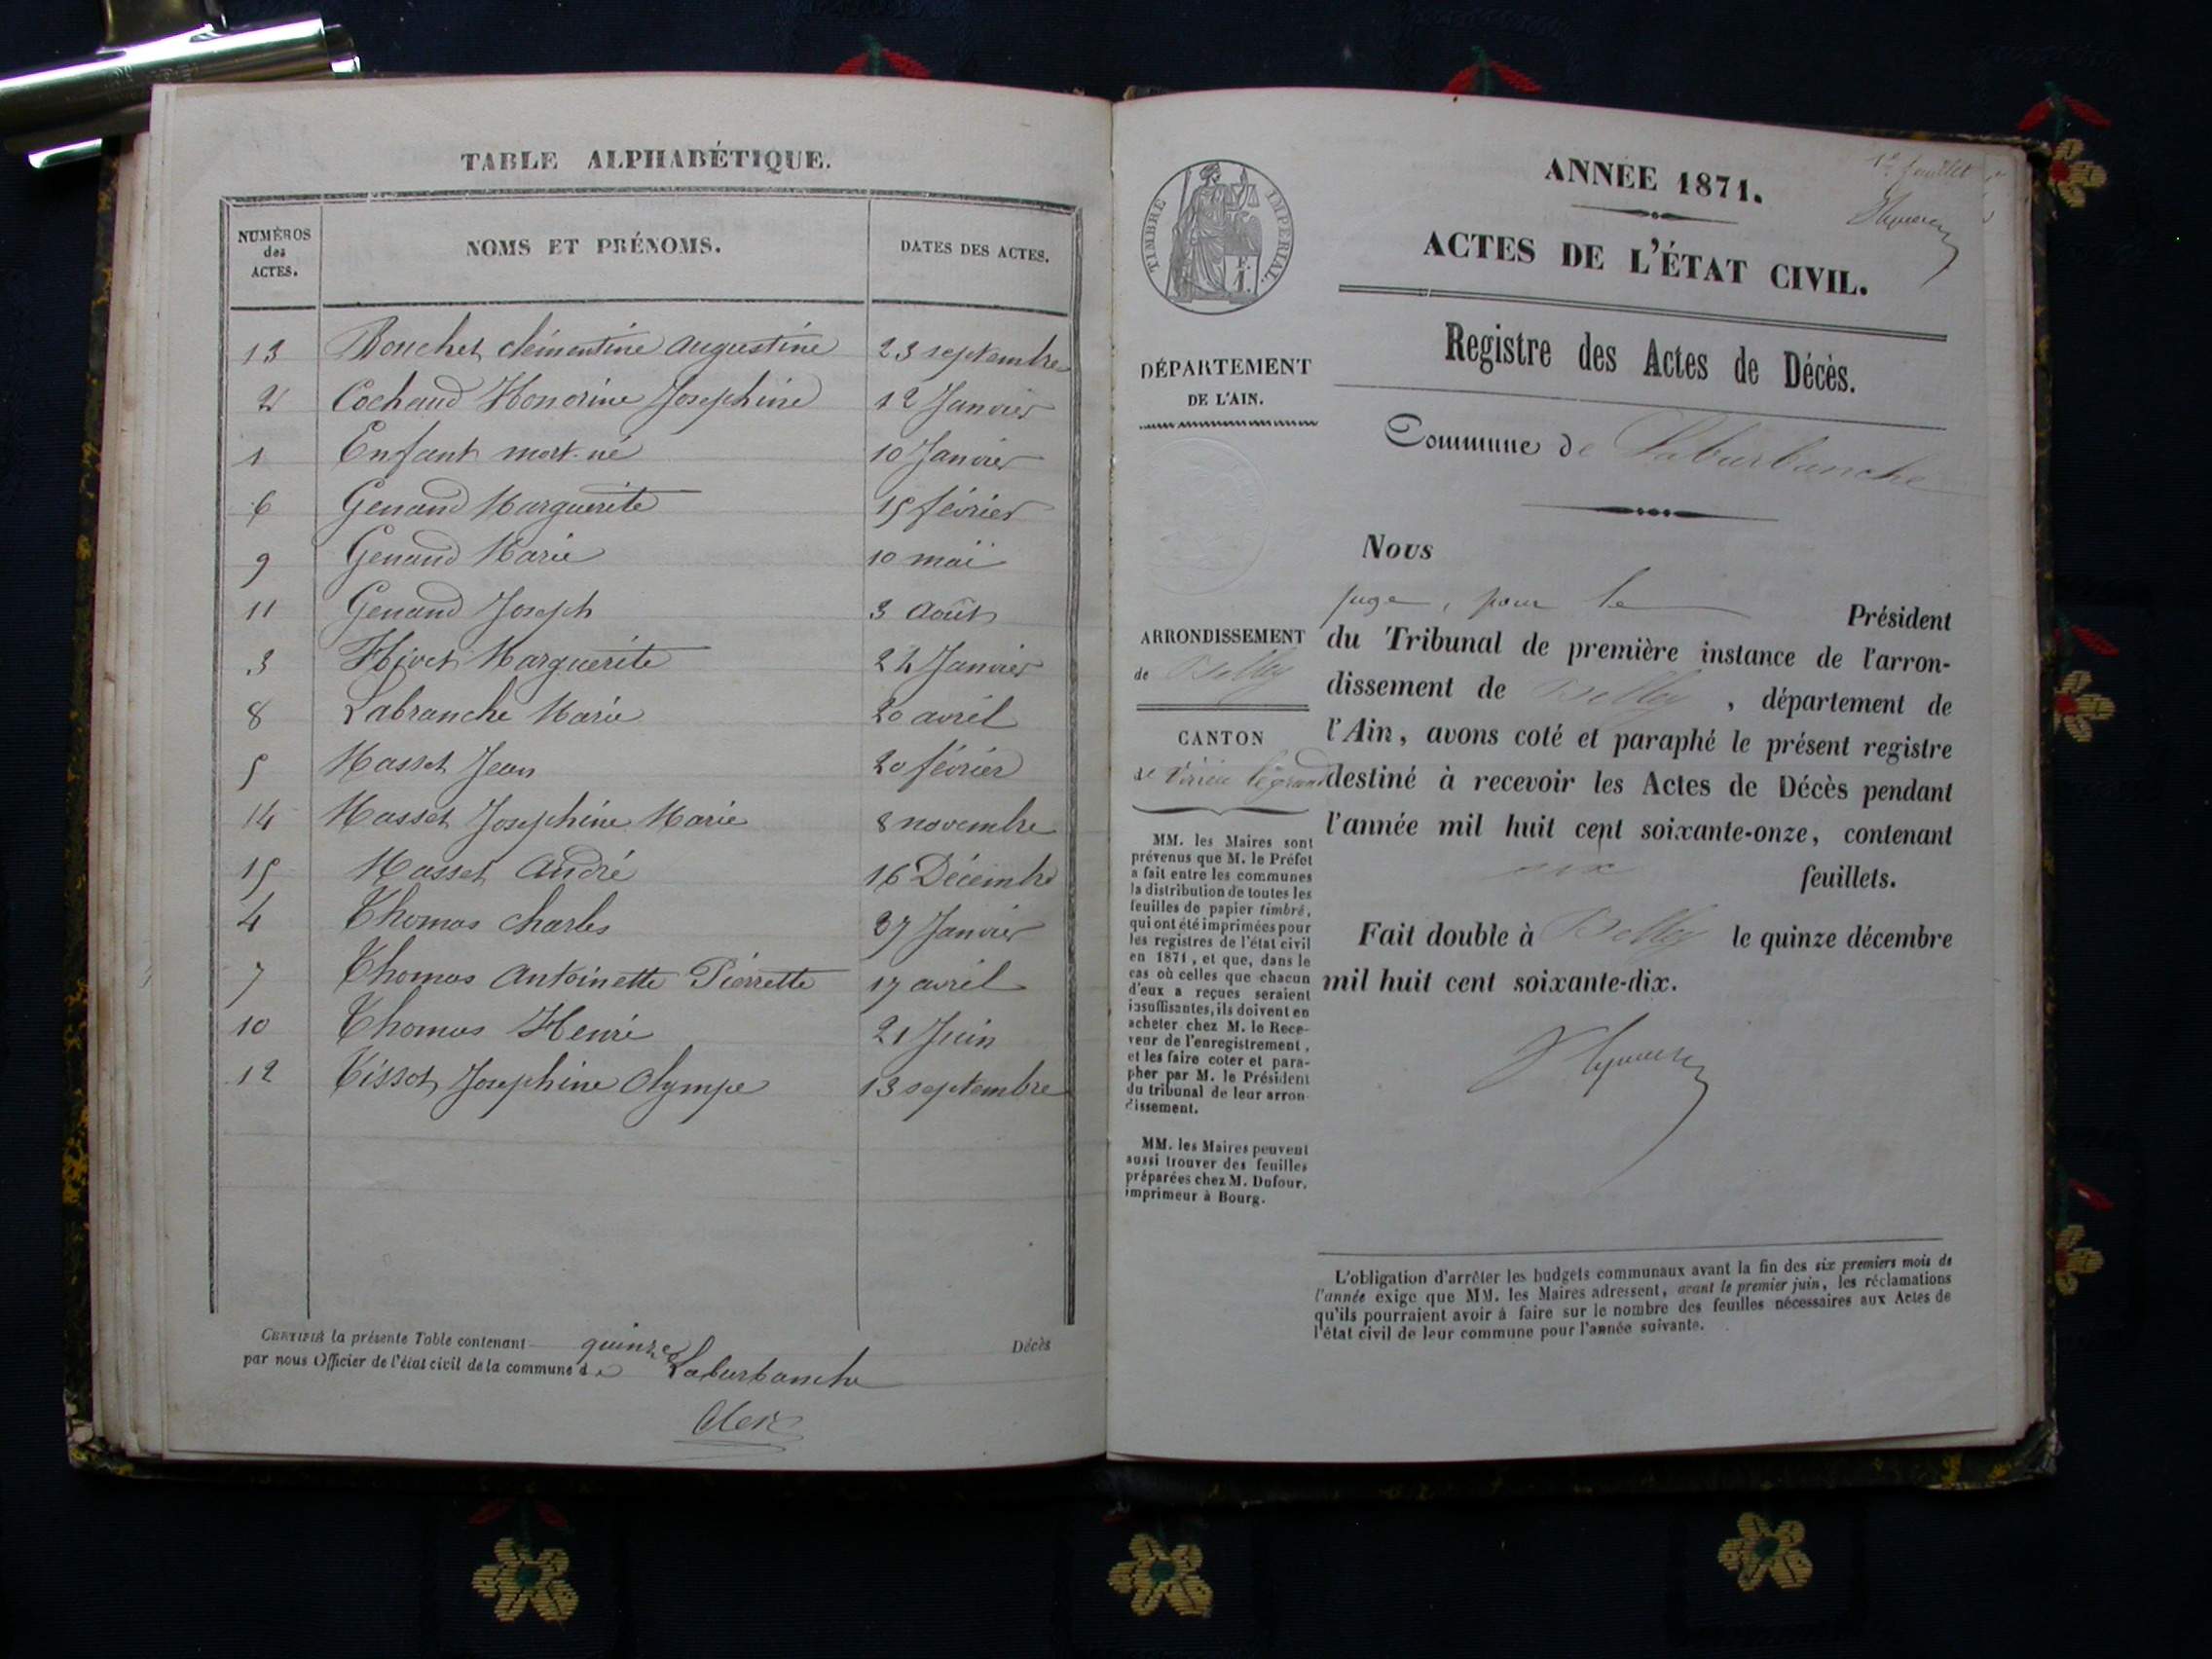 TABLE ALPHABÉTIQUE.
NUMÉROS des ACTES. NOMS ET PRÉNOMS. DATES DES ACTES.
13 Bouchet clémentine augustine 23 septembre
2 Cochaud Honorine Josephine 12 Janvier
1 Enfant mort-né 10 Janvier
6 Genand Marguerite 15 février
9 Genand Marie 10 mai
11 Genand Joseph 3 Août
3 Marguerite 24 Janvier
8 Labranche Marie 20 avril
5 Masset Jean 20 février
14 Masset Josephine Marie 8 novembre
15 Masset André 16 Décembre
4 Thomas charles 27 Janvier
7 Thomas Antoinette Pierrette 17 avril
10 Thomas Henri 21 Juin
12 Tissot Josephine Olympe 13 septembre
CERTIFIÉ la présente Table contenant quinze Décès
par nous Officier de l'état civil de la commune de Laburbanche
1er feuillet
TIMBRE IMPERIAL.
F. 1.
ANNÉE 1871.
ACTES DE L'ÉTAT CIVIL.
Registre des Actes de Décès.
DÉPARTEMENT
DE L'AIN.
Commune de Laburbanche
ARRONDISSEMENT
de Belley
CANTON
de Virieu le grand
MM. les Maires sont
prévenus que M. le Préfet
a fait entre les communes
la distribution de toutes les
feuilles de papier timbré,
qui ont été imprimées pour
les registres de l'état civil
en 1871, et que, dans le
cas où celles que chacun
d'eux a reçues seraient
insuffisantes, ils doivent en
acheter chez M. le Rece-
veur de l'enregistrement,
et les faire coter et para-
pher par M. le Président
du tribunal de leur arron-
dissement.
MM. les Maires peuvent
aussi trouver des feuilles
préparées chez M. Dufour,
imprimeur à Bourg.
Nous
juge, pour le Président
du Tribunal de première instance de l'arron-
dissement de Belley, département de
l'Ain, avons coté et paraphé le présent registre
destiné à recevoir les Actes de Décès pendant
l'année mil huit cent soixante-onze, contenant
six feuillets.
Fait double à Belley le quinze décembre
mil huit cent soixante-dix.
L'obligation d'arrêter les budgets communaux avant la fin des six premiers mois de
l'année exige que MM. les Maires adressent, avant le premier juin, les réclamations
qu'ils pourraient avoir à faire sur le nombre des feuilles nécessaires aux Actes de
l'état civil de leur commune pour l'année suivante.